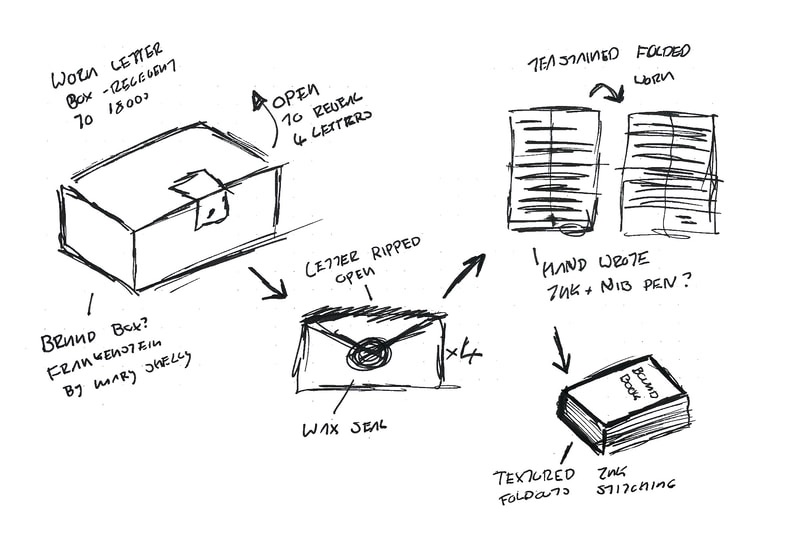 WORN LETTER
BOX - RELEVENT
TO 1800s
OPEN
TO REVEAL
4 LETTERS
TEASTAINED FOLDED
WORN
HAND WROTE
INK + NIB PEN?
LETTER RIPPED
OPEN
×4
WAX SEAL
BRAND BOX?
FRANKENSTEIN
BY MARY SHELLY
BOUND
BOOK
TEXTURED INK
FOLDOUTS STITCHING